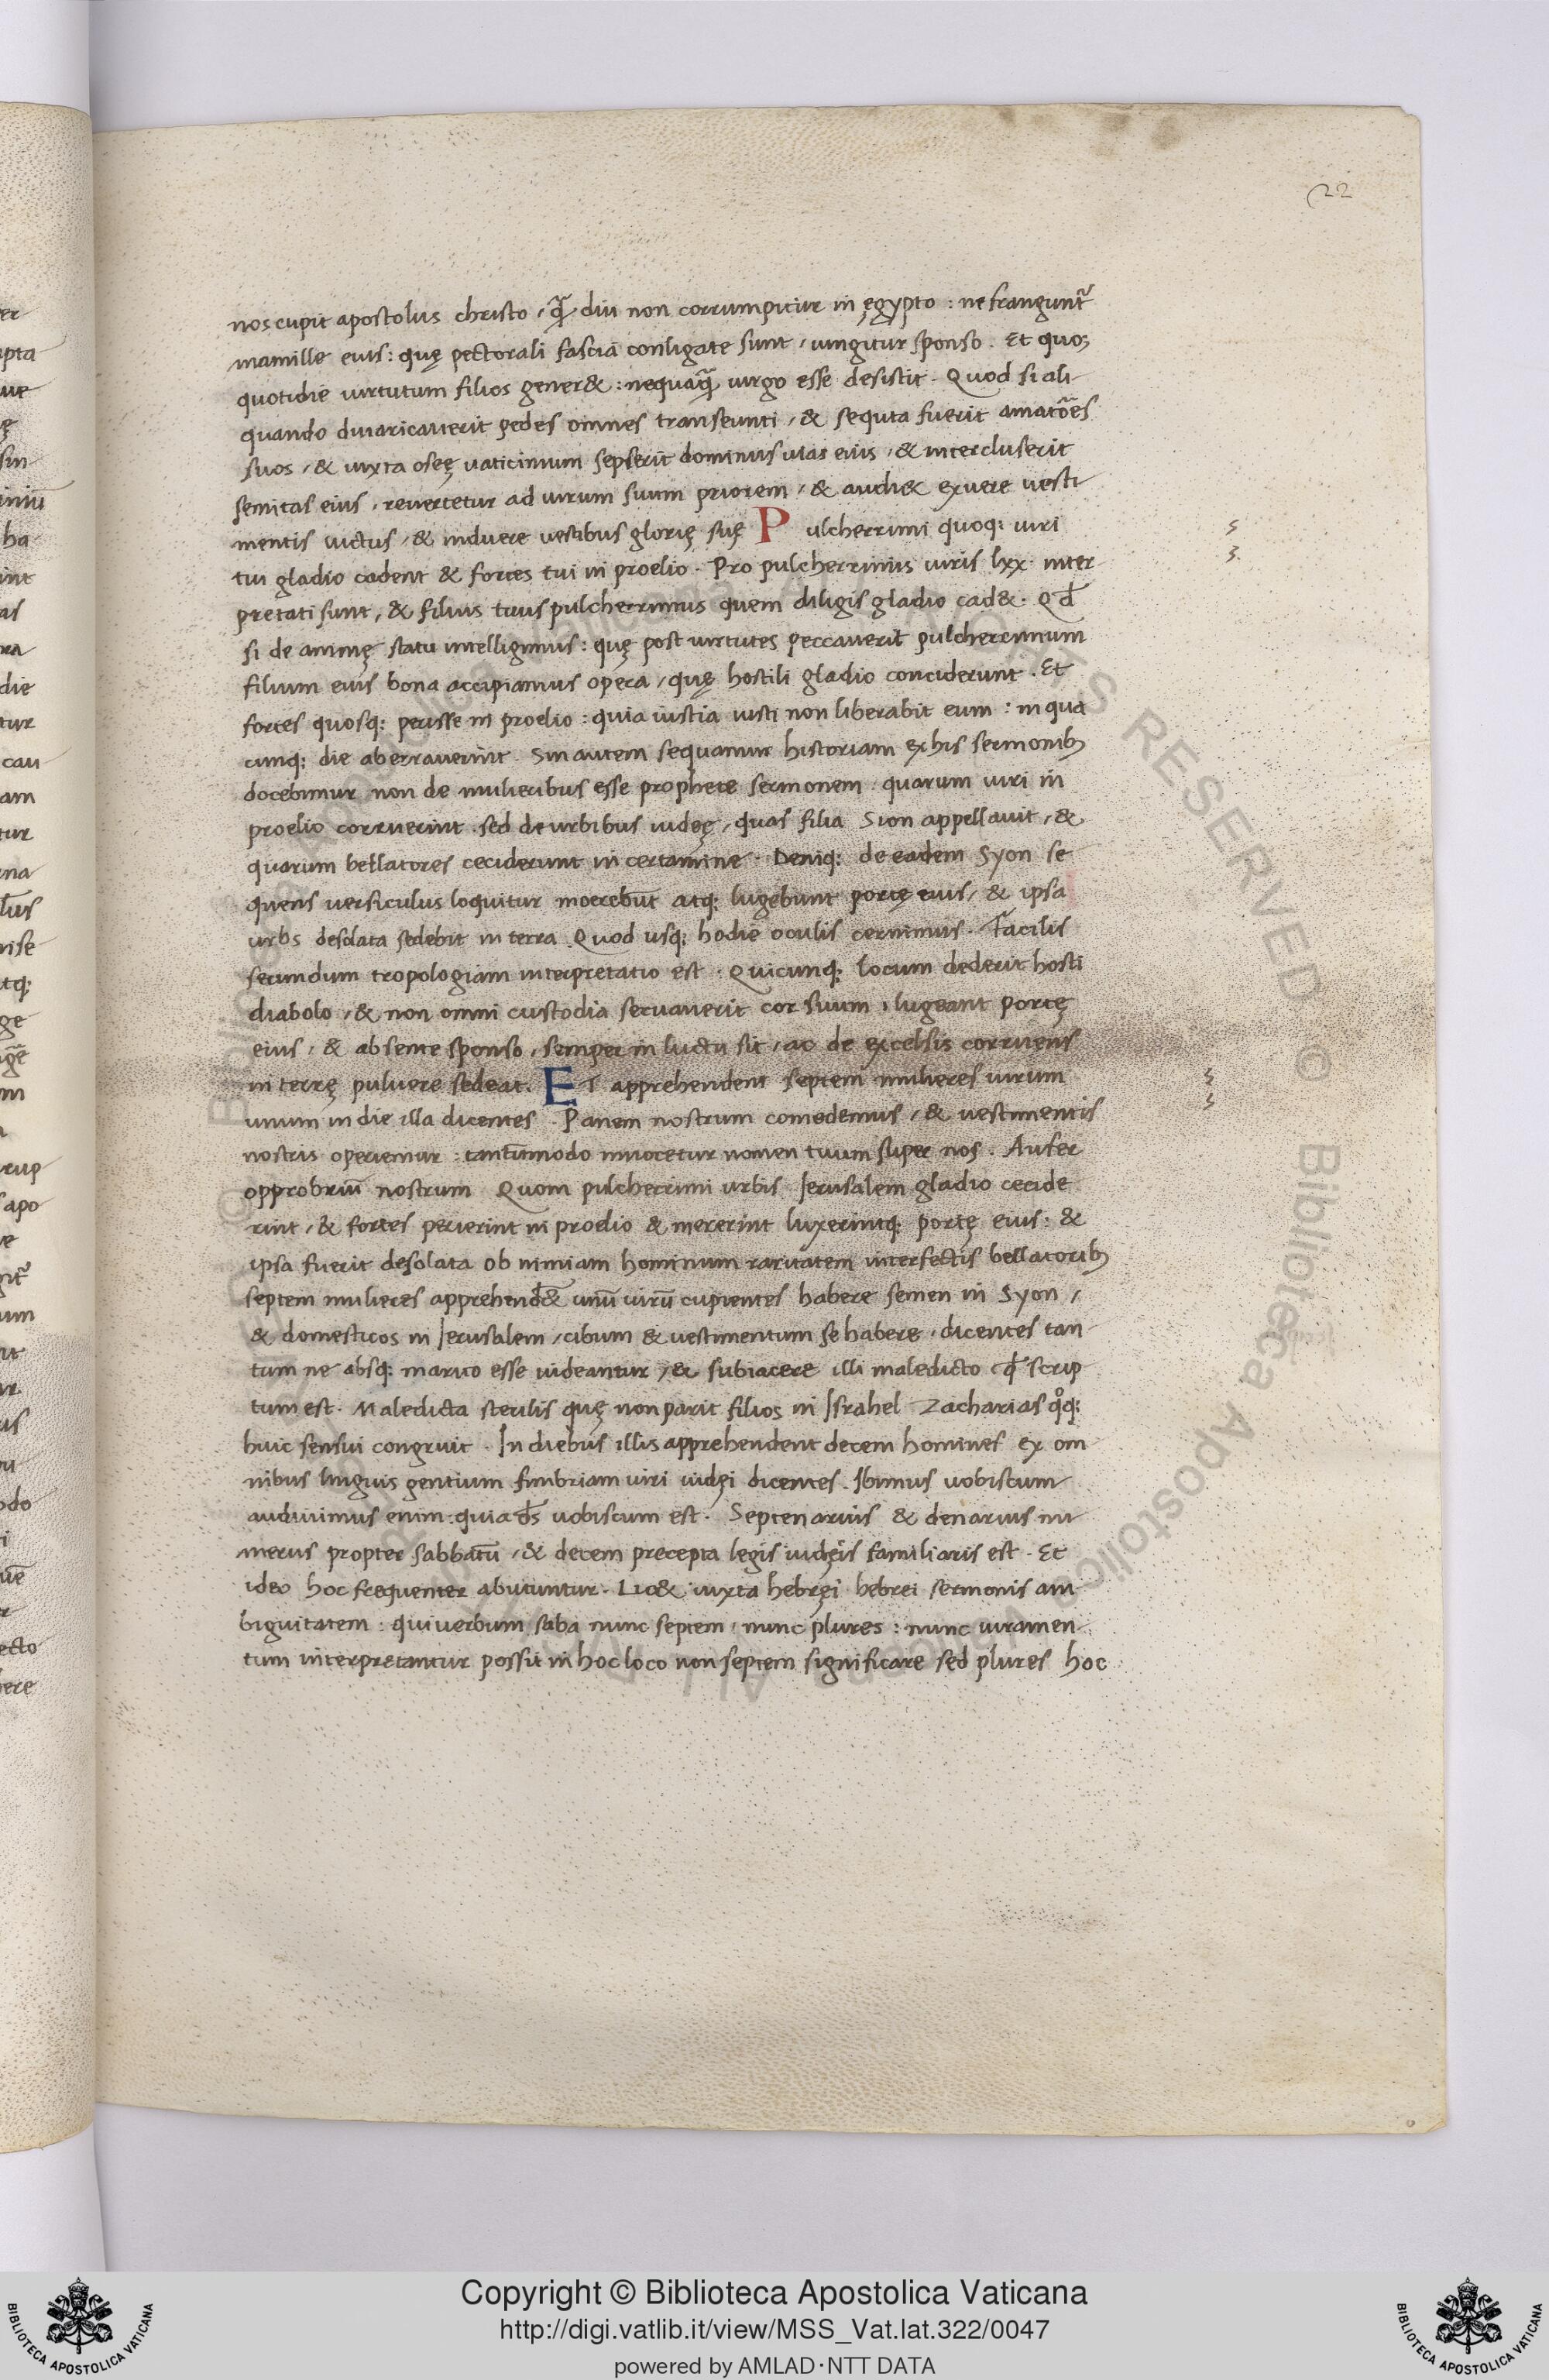 22
nos cupit apostolus christo / q̃ diu non corrumpitur in ęgypto : ne frangunt̃
mamille euis : quę pectorali fascia conligate sunt / iungitur sponso . Et quoʒ
quotidie uirtutum filios gener& : nequaq̃ uirgo esse desistit . Quod si ali
quando diuaricauerit pedes omnes transeunti / & sequta fuerit amatões
suos / & iuxta oseę uaticinium sepserit dominus uias eius / & intercluserit
semitas eius , reuertetur ad uirum suum priorem / & audi& exuere uesti
mentis luctus / & induere uestibus glorię suę Pulcherrimi quoq; uiri
tui gladio cadent & fortes tui in proelio . Pro pulcherrimis uiris lxx . inter
pretati sunt , & filius tuus pulcherrimus quem diligis gladio cad& . Qd̃
si de animę statu intelligimus : quę post uirtutes peccauerit pulcherrimum
filium euis bona accipiamus opera / quę hostili gladio conciderunt . Et
fortes quosq; perisse in proelio : quia iustia iusti non liberabit eum : in qua
cunq; die aberrauerint . Sin autem sequamur historiam ex his sermonib;
docebimur non de mulieribus esse prophete sermonem . quarum uiri in
proelio corruerint . sed de urbibus iudeę / quas filia Sion appellauit / &
quarum bellatores ceciderunt in certamine . Deniq; de eadem Syon se
quens uersiculus loquitur moerebũt atq; lugebunt portę euis / & ipsa
urbs desolata sedebit in terra . Quod usq; hodie oculis cernimus . Facilis
secundum tropologiam interpretatio est . Quicunq; locum dederit hosti
diabolo / & non omni custodia seruauerit cor suum , lugeant portę
eius / & absente sponso , semper in luctu sit / ac de excelsis corruens
in terrę puluere sedeat . ET apprehendent septem mulieres uirum
unum in die illa dicentes . Panem nostrum comedemus / & uestimentis
nostris operiemur : tantũmodo inuocetur nomen tuum super nos . Aufer
opprobriũ nostrum Quom pulcherrimi urbis Jerusalem gladio cecide
rint / & fortes perierint in proelio & mererint luxerintq; portę eius : &
ipsa fuerit desolata ob nimiam hominum raritatem interfectis bellatorib;
septem mulieres apprehend& unũ uirũ cupientes habere semen in Syon /
& domesticos in Jerusalem / cibum & uestimentum se habere . dicentes tan
tum ne absq; marito esse uideantur / & subiacere illi maledicto qd̃ scrip
tum est . Maledicta sterilis quę non parit filios in Israhel Zacharias qͦq;
huic sensui congruit . In diebus illis apprehendent decem homines ex om
nibus linguis gentium fimbriam uiri iudęi dicentes . Ibimus uobiscum
audiuimus enim : quia ds̃ uobiscum est . Septenarius & denarius nu
merus propter sabbatũ / & decem precepta legis iudęis familiaris est . Et
ideo hoc frequenter abutuntur . Lic& iuxta hebręi hebrei sermonis am
biguitatem : qui uerbum saba nunc septem , nunc plures : nunc iuramen
tum interpretantur possit in hoc loco non septem significare sed plures hoc
Copyright © Biblioteca Apostolica Vaticana
http://digi.vatlib.it/view/MSS_Vat.lat.322/0047
powered by AMLAD·NTT DATA